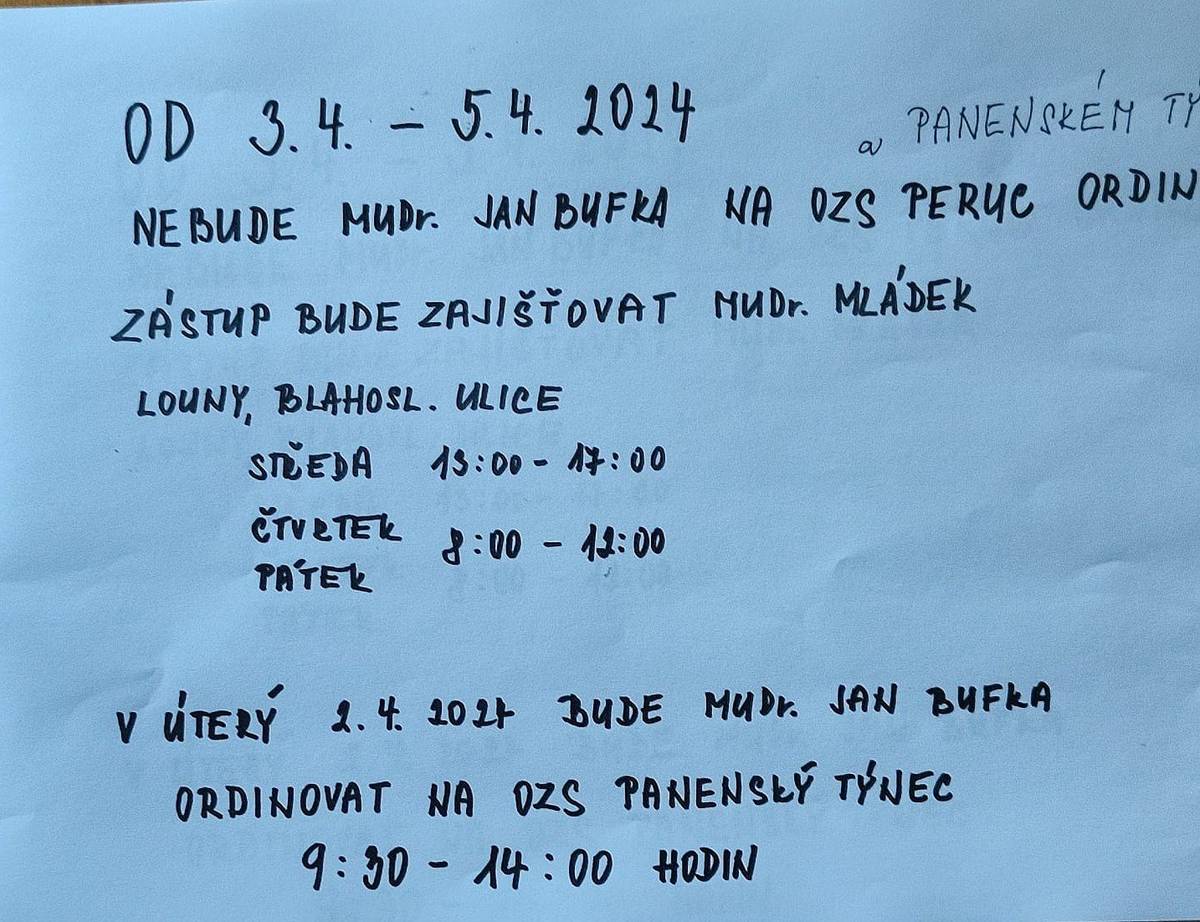 OD 3.4. – 5.4. 2024
a PANENSKÉM TÝ
NEBUDE MUDr. JAN BUFKA NA OZS PERUC ORDIN
ZÁSTUP BUDE ZAJIŠŤOVAT MUDr. MLÁDEK
LOUNY, BLAHOSL. ULICE
STŘEDA 13:00 - 17:00
ČTVRTEK 8:00 - 12:00
PÁTEK
V ÚTERÝ 2.4. 2024 BUDE MUDr. JAN BUFKA
ORDINOVAT NA OZS PANENSKÝ TÝNEC
9:30 - 14:00 HODIN